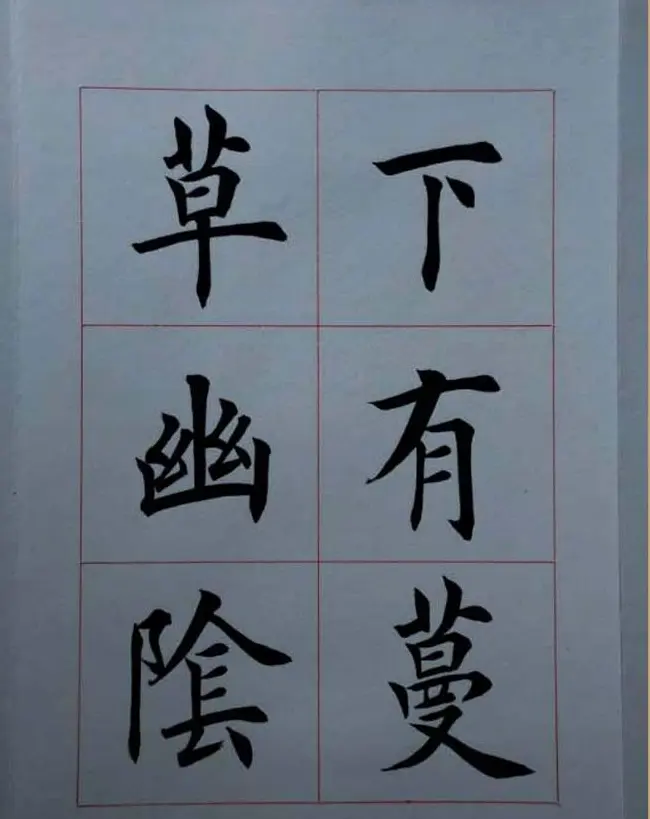 下有蔓
草幽陰